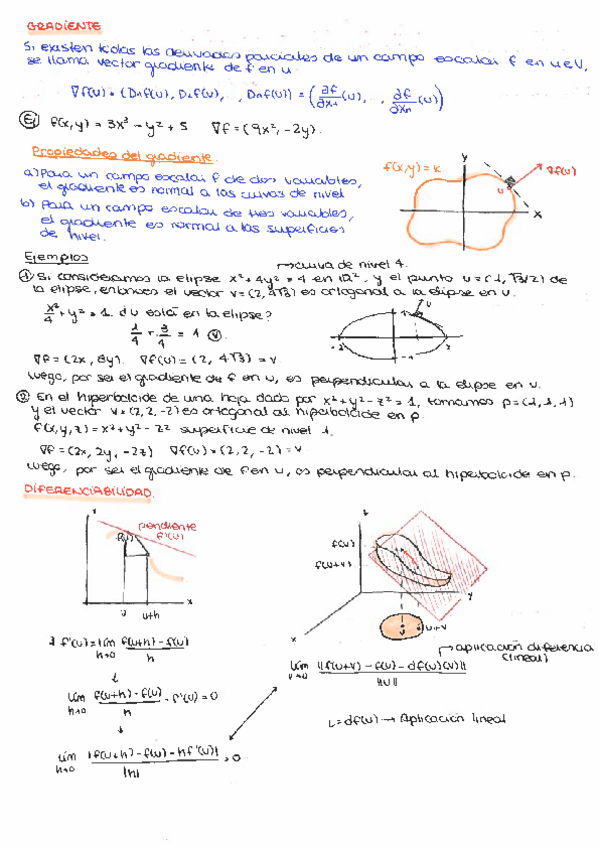 GRADIENTE
Si existen todas las derivadas parciales de un campo escalar f en u∈V,
se llama vector gradiente de f en u.
∇f(u) = (D₁f(u), D₂f(u), ..., Dnf(u)) = (∂f/∂x₁ (u), ..., ∂f/∂xn (u))
Ej f(x,y) = 3x³ - y² + 5 ∇f = (9x², -2y).
Propiedades del gradiente.
a) Para un campo escalar f de dos variables,
el gradiente es normal a las curvas de nivel
b) Para un campo escalar de tres variables,
el gradiente es normal a las superficies
de nivel.
f(x,y) = k
y
∇f(u)
u
x
Ejemplos
→ curva de nivel 4.
① Si consideramos la elipse x² + 4y² = 4 en ℝ², y el punto u = (1, √3/2) de
la elipse, entonces el vector v = (2, 4√3) es ortogonal a la elipse en u.
x²/4 + y² = 1. ¿u está en la elipse?
1/4 + 3/4 = 1
∇f = (2x, 8y). ∇f(u) = (2, 4√3) = v
Luego, por ser el gradiente de f en u, es perpendicular a la elipse en u.
② En el hiperboloide de una hoja dado por x² + y² - z² = 1, tomamos p = (1, 1, 1)
y el vector v = (2, 2, -2) es ortogonal al hiperboloide en p.
f(x,y,z) = x² + y² - z² superficie de nivel 1.
∇f = (2x, 2y, -2z) ∇f(u) = (2, 2, -2) = v
Luego, por ser el gradiente de f en u, es perpendicular al hiperboloide en p.
DIFERENCIABILIDAD.
pendiente
f'(u)
f(u)
u
u+h
x
z
f(u)
f(u+v)
y
u+v
x
∃ f'(u) = lím h→0 f(u+h) - f(u) / h
lím h→0 f(u+h) - f(u) / h - f'(u) = 0
lím h→0 |f(u+h) - f(u) - hf'(u)| / |h| = 0
→ aplicación diferencia
(lineal)
lím v→0 ||f(u+v) - f(u) - df(u)(v)|| / ||v||
L = df(u) → Aplicación lineal